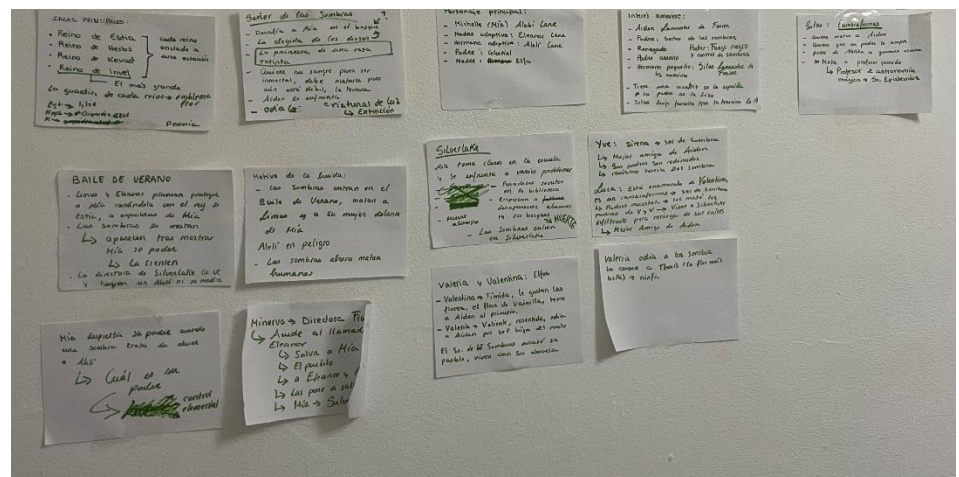 IDEAS PRINCIPALES:
• Reino de Estia
• Reino de Hestos
• Reino de Kevad
• Reino de Invel
cada reino
anclado a
una estación
El más grande
La guardia de cada reino → emblema
flor
Est → lirio
Deonia
Señor de las Sombras
?
- Desafía a Mía en el bosque
- La elegida de los dioses
- La princesa de una raza
extinta
- Quiere su sangre para ser
inmortal, debe matarla pues
aún está débil, la teme
- Aiden se enfrenta
- criaturas de luz
↳ Extinción
Personaje principal:
- Michelle (Mía) Alabi Lane
- Madre adoptiva: Eleanor Lane
- Hermana adoptiva: Alelí Lane
- Padre: Celestial
- Madre: Elfa
Interés amoroso:
- Aiden de Faire
- Padre: Señor de las sombras
- Renegado
Poder: Fuego negro
- Poder
o sombras
- Hermano pequeño: Silas
- Tiene una en la espalda
su padre se la hizo
- Silas hijo favorito tras la traición de A
Silas:
- Quiere matar a Aiden
- Mata a profesor querido
↳ Profesor de astronomía
BAILE DE VERANO
• Linus y Eleanor planean proteger
a Mía casándola con el rey de
Estia, a espaldas de Mía
• Las sombras lo matan
↳ aparecen tras mostrar
Mía su poder
↳ La sienten
• La directora de Silverlake la ve
y huyen sin Alelí ni su madre
Motivo de la huida:
- Las sombras entran en el
Baile de Verano, matan a
Linus y a su mujer delante
de Mía
Alelí en peligro
- Las sombras ahora matan
humanos
Silverlake
Mía toma clases en la escuela
y se enfrenta a varios problemas
- Pasadizos secretos
en la biblioteca
- Empiezan a
desaparecer alumnos
en su bosque
↳ MUERTE
- Muere
alumno
- Las Sombras entran
en Silverlake
Yve: sirena → ser de Sombra
↳ Mejor amiga de Aiden
↳ Sus padres son redimidos
↳ rastrean hacia las sombras
Luca: Está enamorado de Valentina,
es un → ser de Sombra
↳ Padres muertos → los mató los
padres de V y V → Vive en Silverlake
infiltrado para venganza de sus raíces
↳ Mejor Amigo de Aiden
Valeria y Valentina: Elfas
- Valentina → Tímida, le gustan las
flores, el flan de Vainilla, teme
a Aiden al principio.
- Valeria → Valiente, rencorosa, odia
a Aiden por ser hijo del malo
El Sr. de las Sombras arrasó su
pueblo, viven con su abuela
Valeria odia a las sombras
La conoce a Thais (la flor más
bella) → ninfa
Mía despierta su poder cuando
una sombra trata de abusar
a Alelí
↳ Cuál es su
poder
↳ control
elemental
Minerva → Directora
↳ Acude al llamado
Eleanor
↳ Salva a Mía
↳ El pueblo
↳ a Eleanor y
↳ Las pone a sal
↳ Mía → Salv